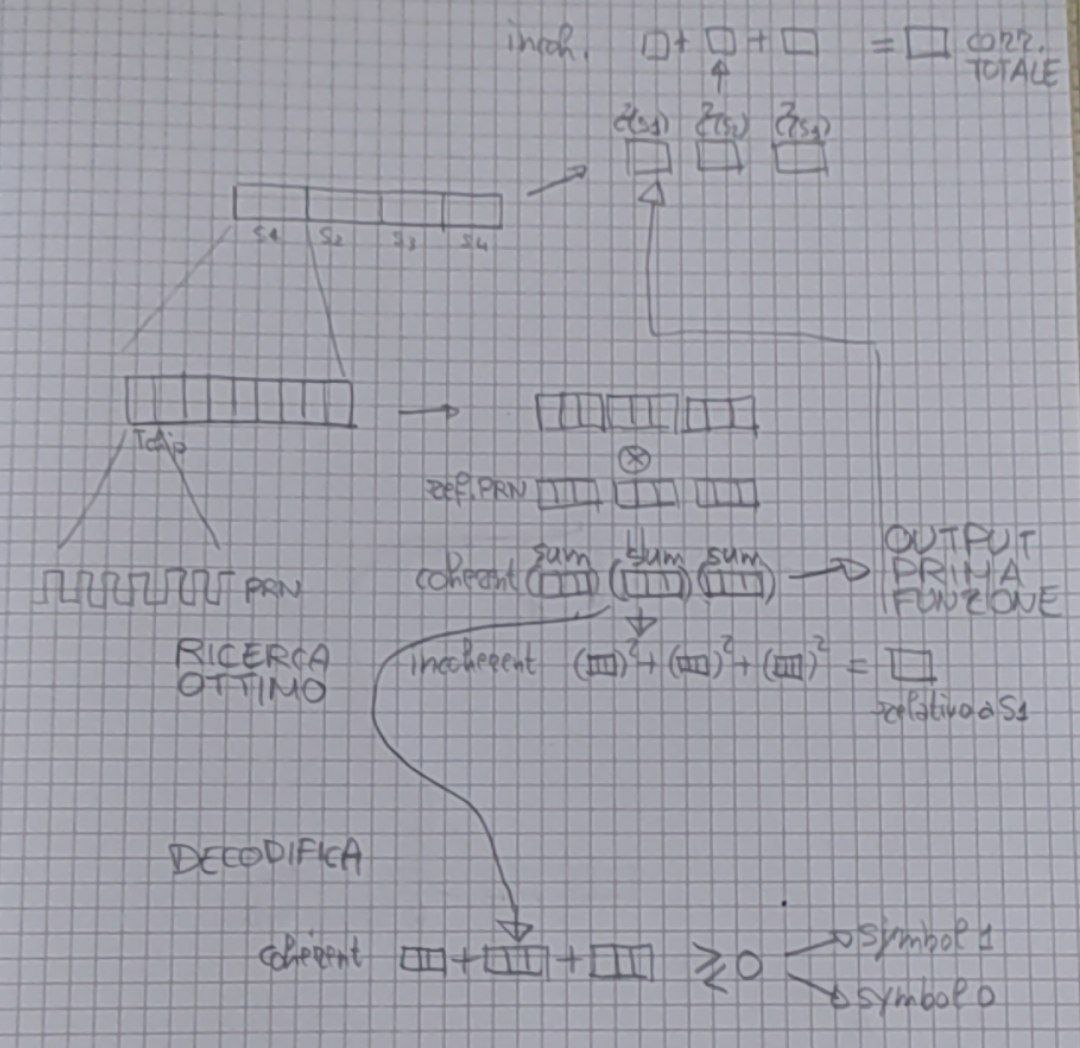 incoh. □ + □ + □ = □ corr. TOTALE
S1 S2 S3 S4
Tchip
⊗
ref. PRN
sum sum sum
coherent ( ) ( ) ( )
OUTPUT
PRIMA
FUNZIONE
PRN
RICERCA
OTTIMO
incoherent ( )² + ( )² + ( )² = □
relativo a S1
DECODIFICA
coherent □ + □ + □ ≷ 0
symbol 1
symbol 0